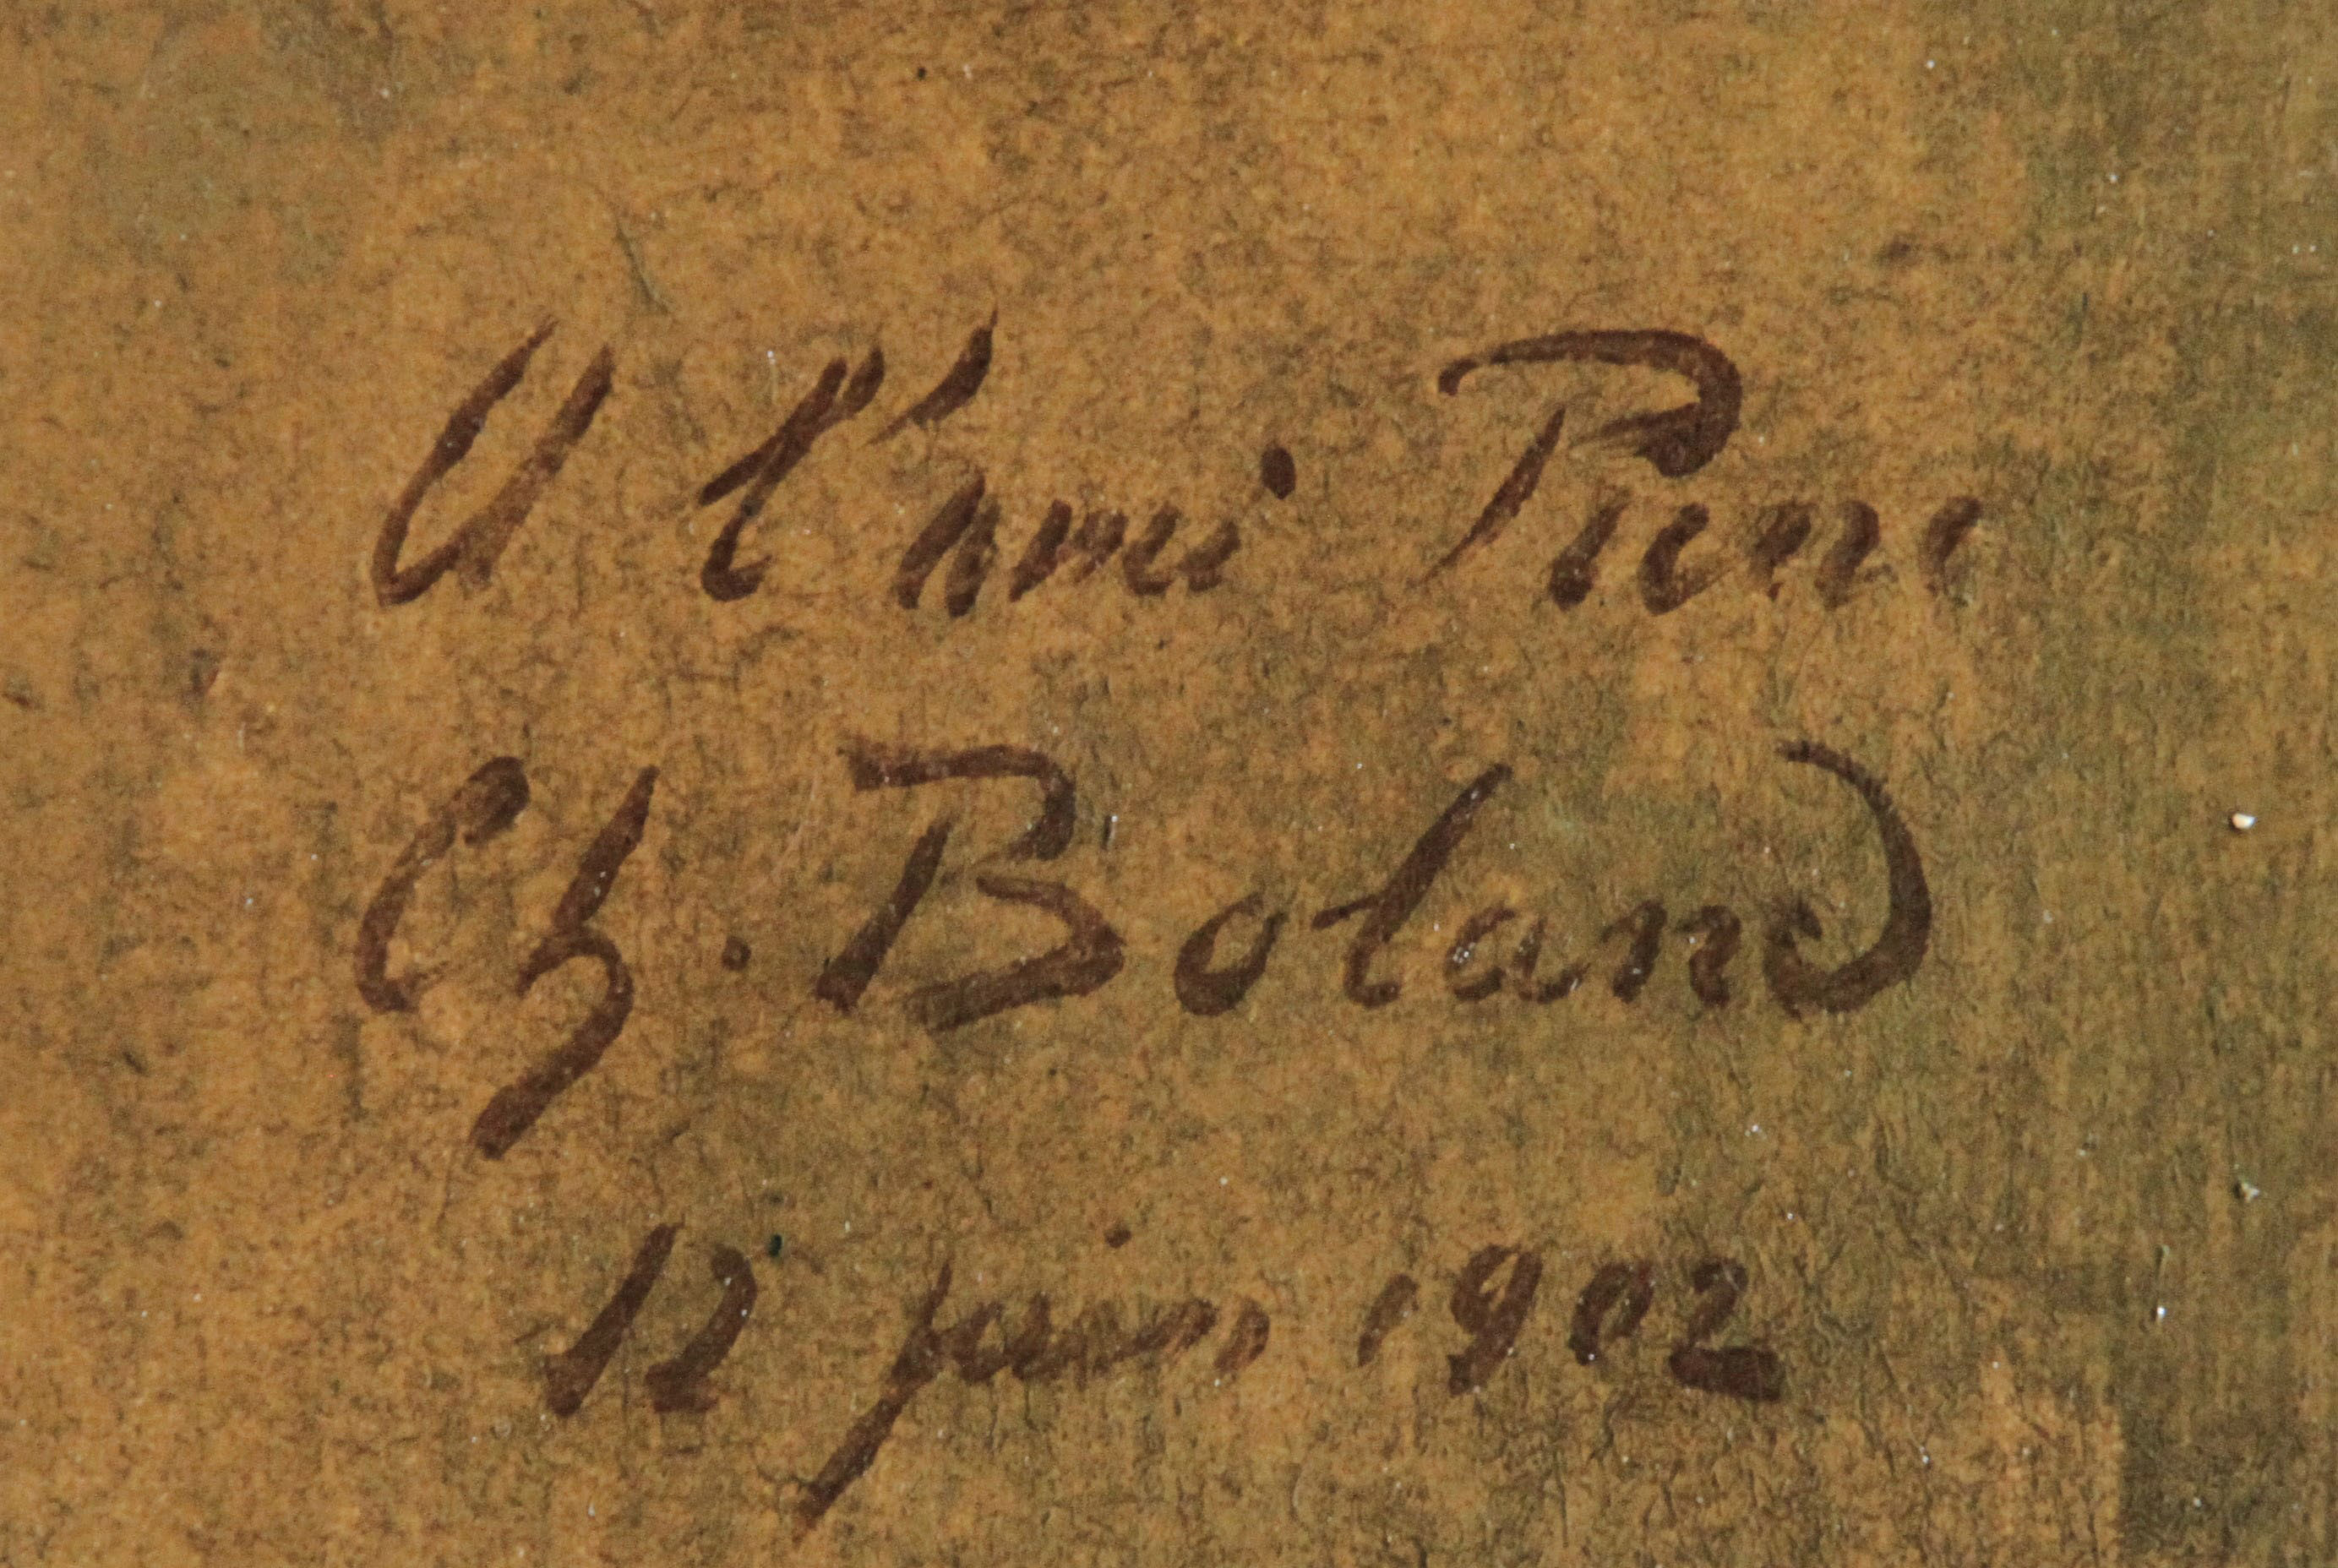 A l'ami Pierre
Ch. Boland
12 juin 1902